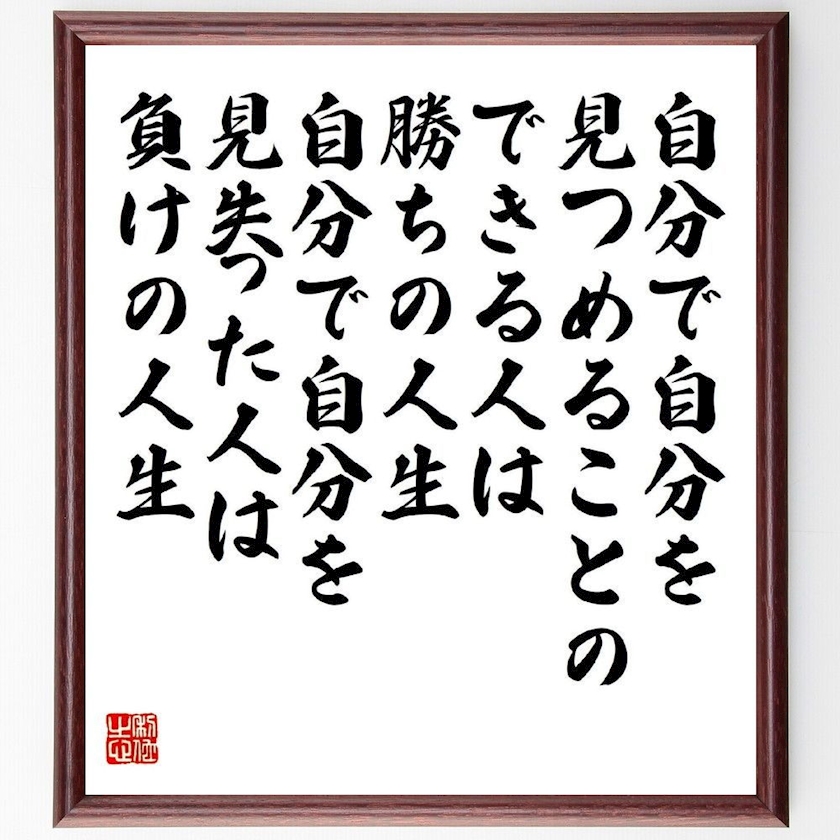 自分で自分を
見つめることの
できる人は
勝ちの人生
自分で自分を
見失った人は
負けの人生